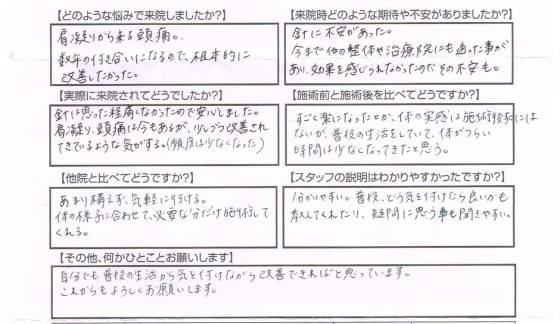 【どのような悩みで来院しましたか?】
肩凝りから来る頭痛。
数年の付き合いになるので、根本的に
改善したかった。
【来院時どのような期待や不安がありましたか?】
針に不安があった。
今まで他の整体や治療院にも通った事が
あり、効果を感じられなかったのでその不安も。
【実際に来院されてどうでしたか?】
針は思った程痛くなかったので安心しました。
肩凝り、頭痛は今もあるが、少しづつ改善され
てきているような気がする。(頻度は少なくなった)
【施術前と施術後を比べてどうですか?】
すごく楽になったとか、体の実感は施術後すぐには
ないが、普段の生活をしていて、体がつらい
時間は少なくなってきたと思う。
【他院と比べてどうですか?】
あまり構えず、気軽に行ける。
体の様子に合わせて、必要な分だけ施術して
くれる。
【スタッフの説明はわかりやすかったですか?】
分かりやすい。普段、どう気を付けたら良いかも
教えてくれたり、疑問に思う事も聞きやすい。
【その他、何かひとことお願いします】
自分でも普段の生活から気を付けながら改善できればと思っています。
これからもよろしくお願いします。